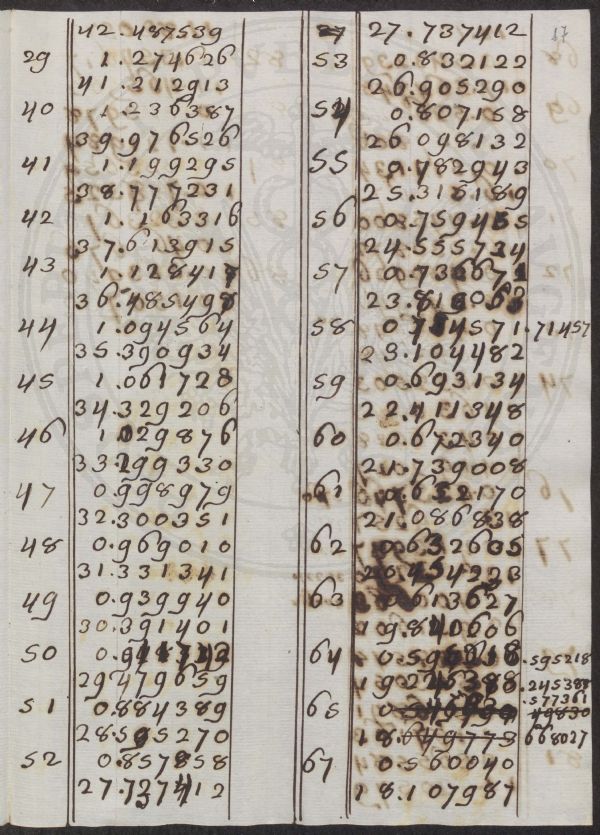 42.487539
29 1.274626
41.212913
40 1.236387
39.976526
41 1.199295
38.777231
42 1.163316
37.613915
43 1.128417
36.485498
44 1.094564
35.390934
45 1.061728
34.329206
46 1.029876
33.299330
47 0.998979
32.300351
48 0.969010
31.331341
49 0.939940
30.391401
50 0.911742
29.479659
51 0.884389
28.595270
52 0.857858
27.737412
17
27.737412
53 0.832122
26.905290
54 0.807158
26.098132
55 0.782943
25.315189
56 0.759455
24.555734
57 0.736671
23.819063
58 0.714571 .71457
23.104482
59 0.693134
22.411348
60 0.672340
21.739008
61 0.652170
21.086838
62 0.632605
20.454223
63 0.613627
19.840606
64 .595218
.245388
65 .577361
49830
18.649773 668027
67 0.560040
18.107987